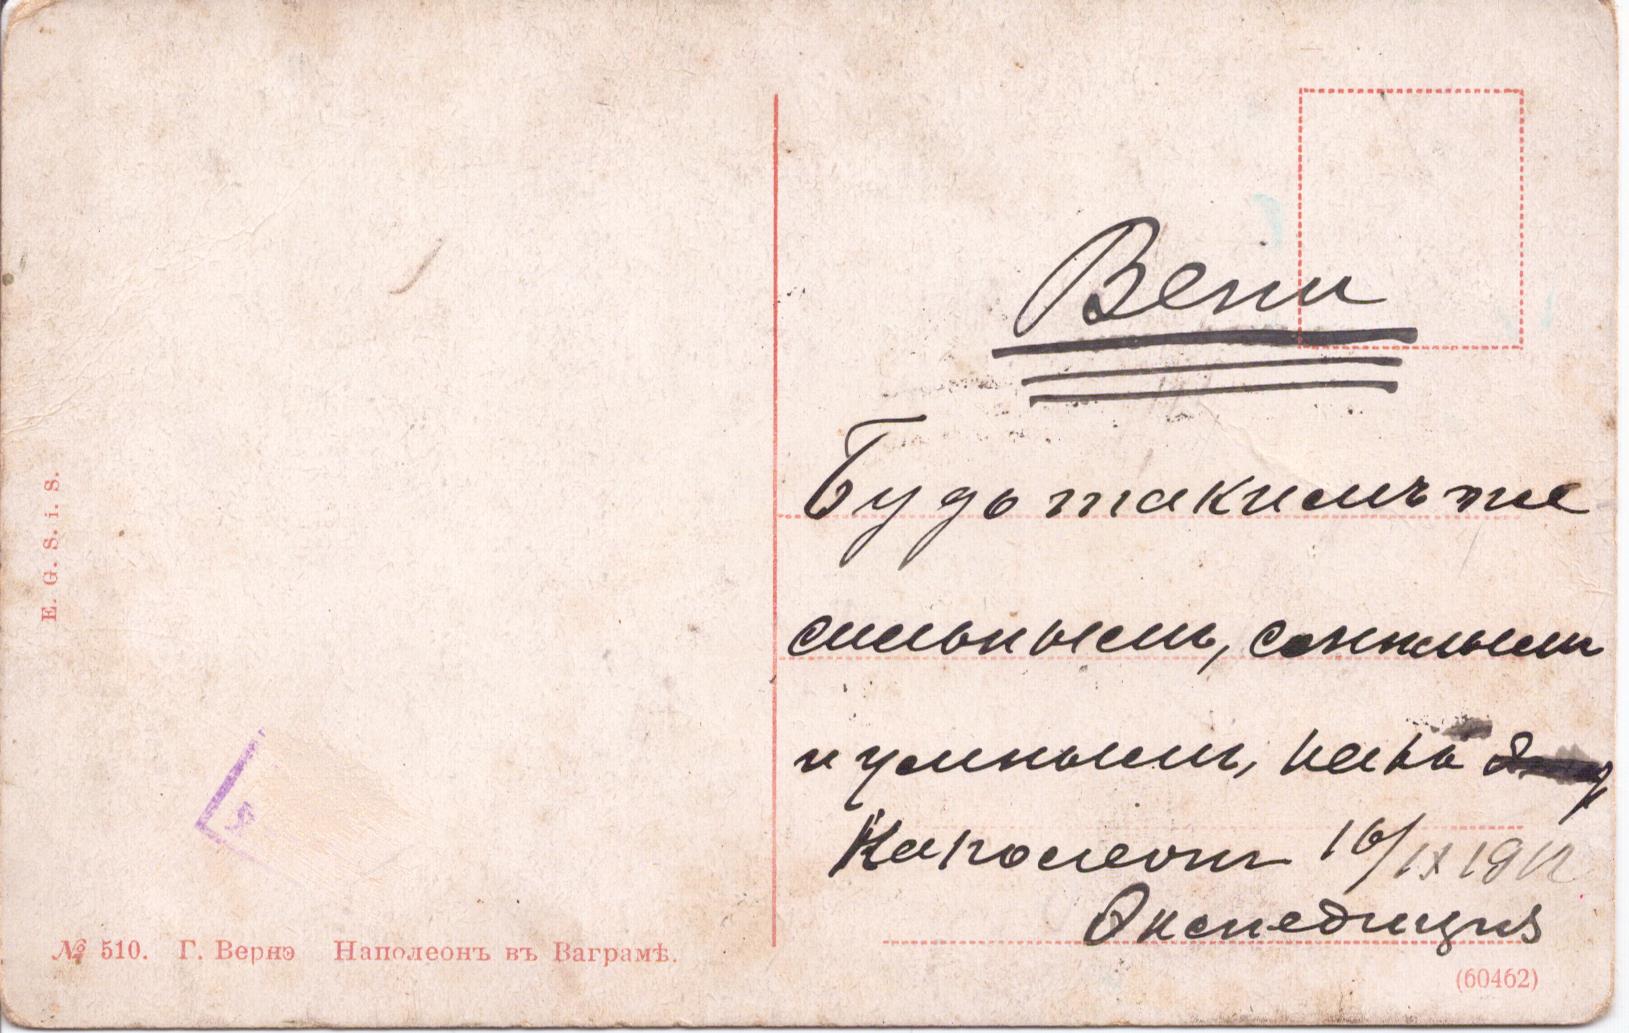 Вени
Будь такимъ же
сильнымъ,
и умнымъ, какъ
Наполеонъ 16/IX 1912
Экспедиция
E. G. S. i. S.
№ 510. Г. Вернэ Наполеонъ въ Ваграмѣ.
(60462)